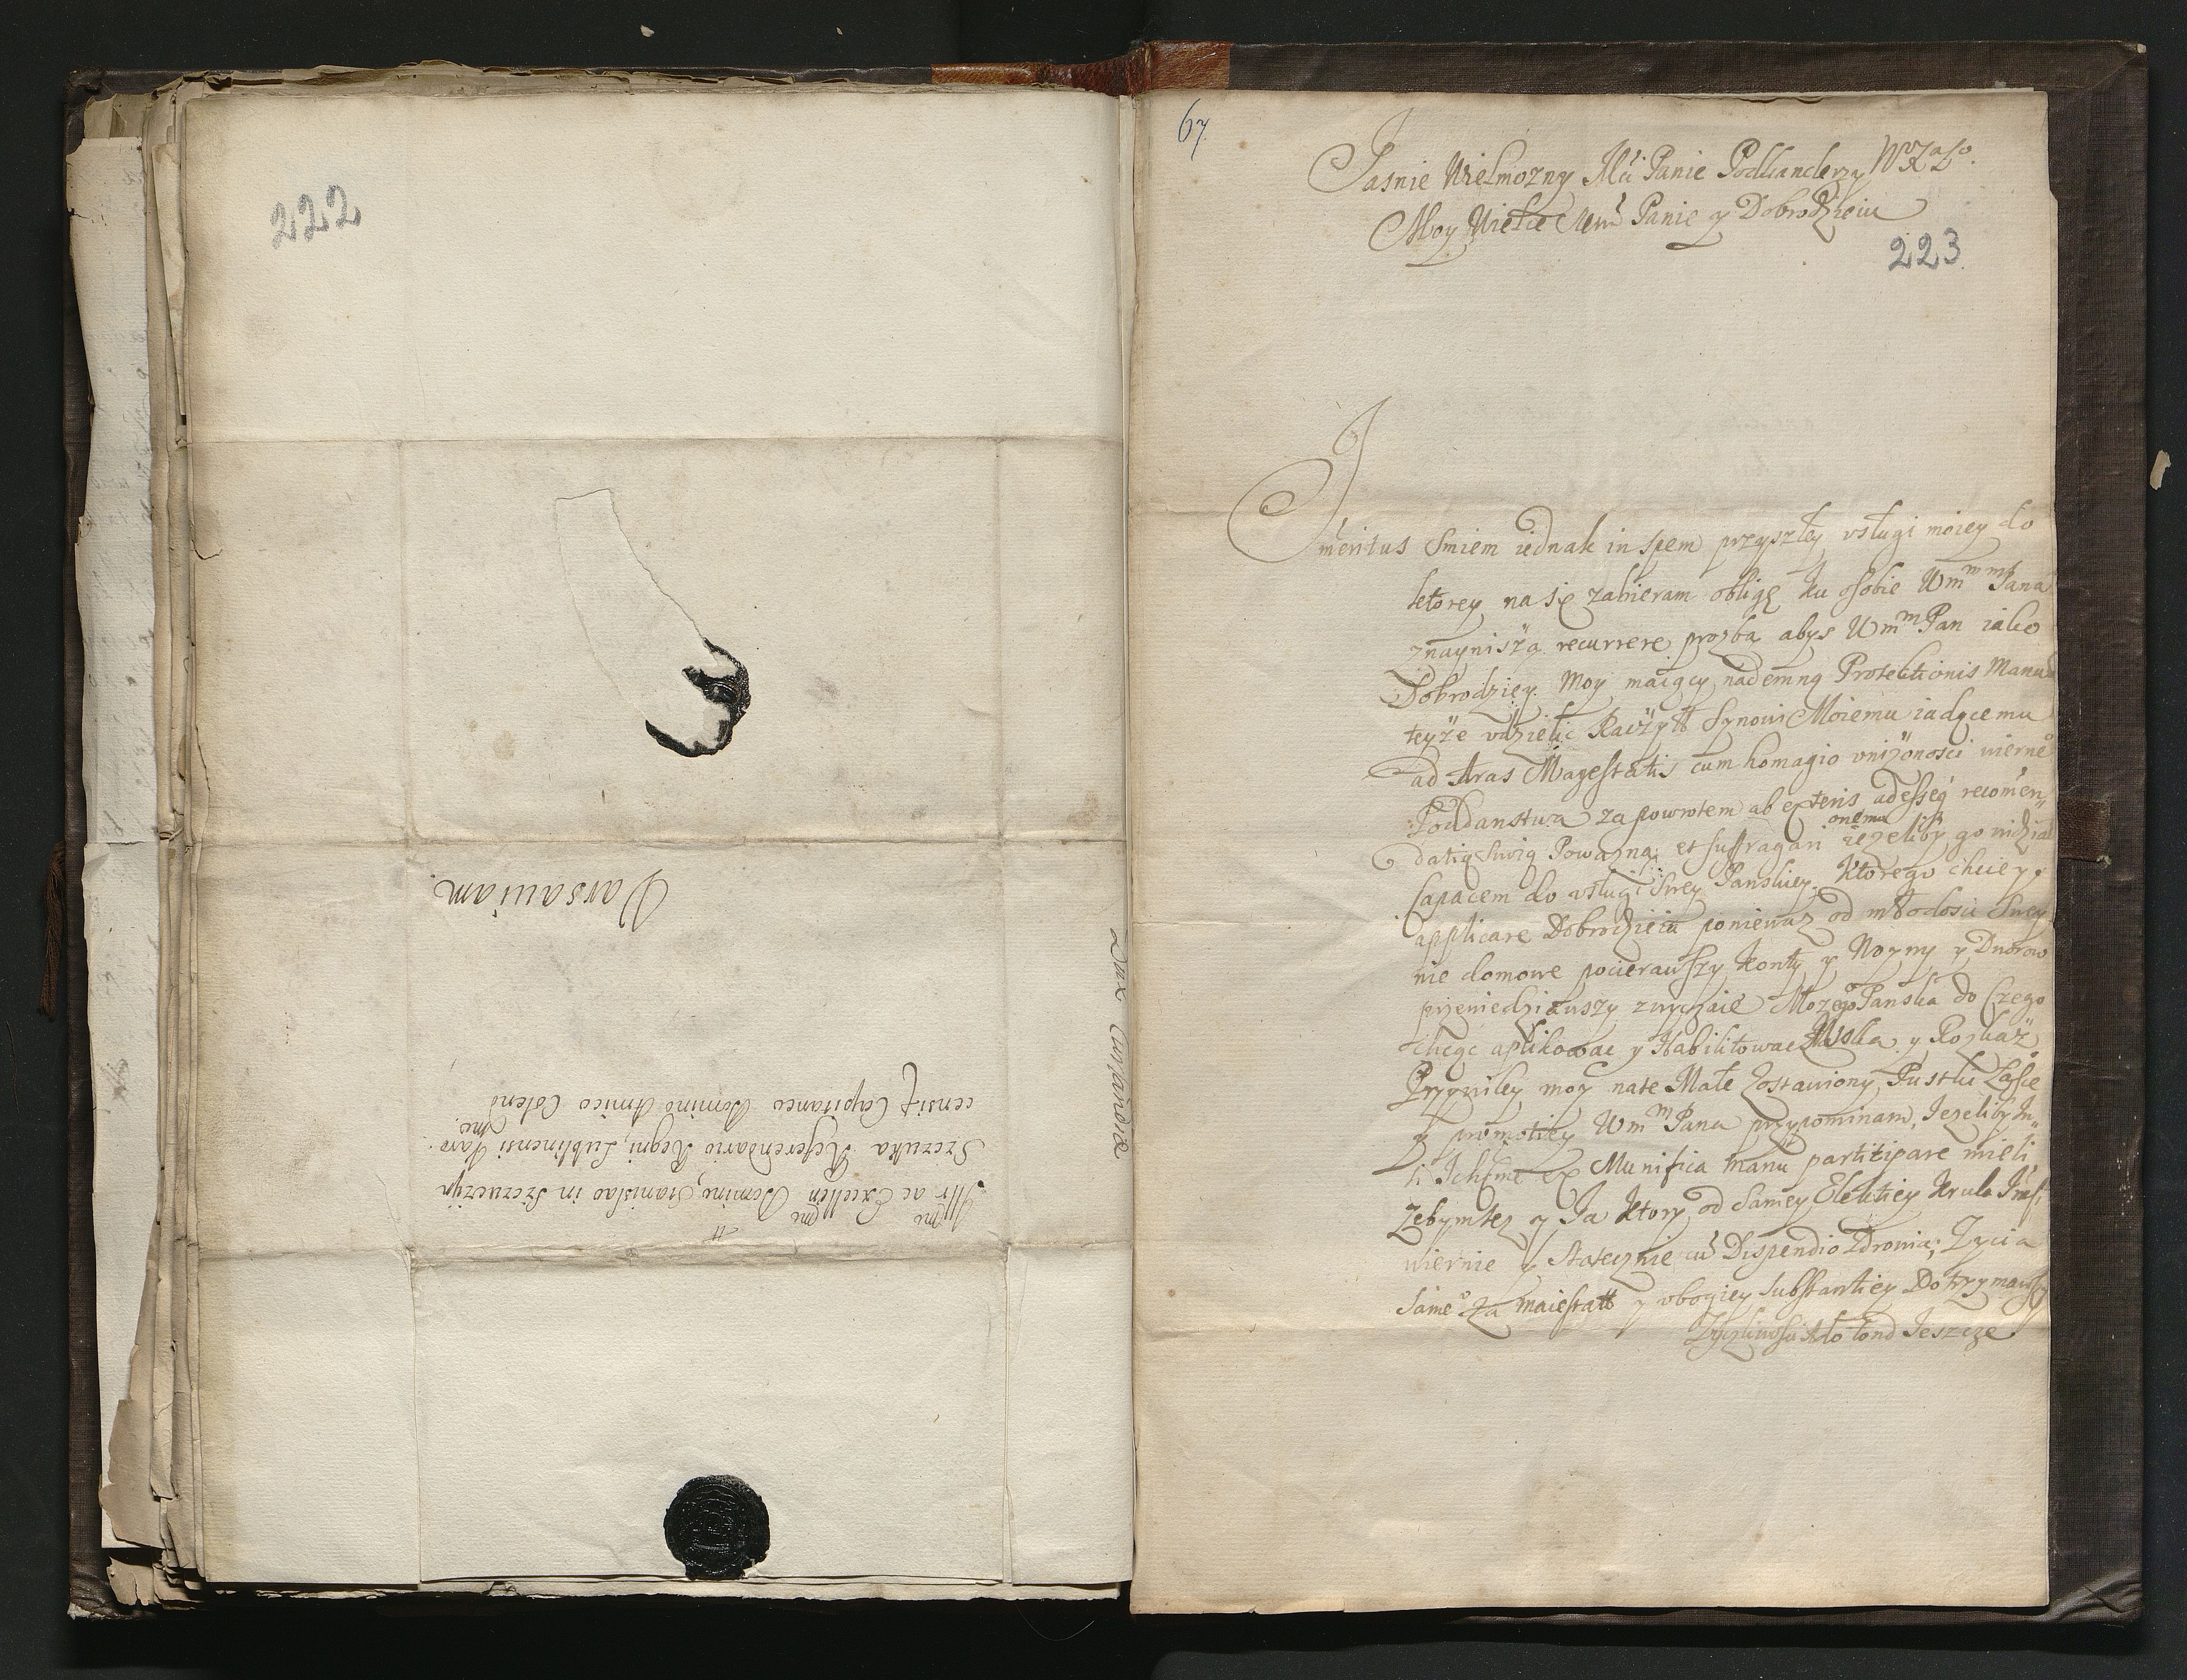 222
Illr mo ac Excellen mo Domino Stanislao in Szczuczyn
Szczuka Referendario Regni, Lublinensi
censiq Capitaneo Domino Amico Colend mo
Varsauiam.
Dux Curlandiæ
67.
Jasnie Wielmozny Mći Panie Podkanclerzy WXaLo.
Moy Wielce Mćiwy Panie y Dobrodzieiu
223
Jmeritus Smiem iednak in spem przyszłey vsługi moiey do
ktorey na się zabieram obligę ku osobie Wmm mPana
znaynisżą recurrere prozbą abys WmmPan iako
Dobrodziey Moy maiący nademną Protektionis Manus
teyże vdzielic Raczył Synowi Moiemu iadącemu
ad Aras Magestatis cum homagio vniżonosci wierne°
Poddanstwa za powrotem ab exteris adessęq recomen„
datią Swią Powazną et suffragari onemu iezeliby go widział
Capacem do vsługi Swey Panskiey. Ktorego chciey
applicare Dobrodzieiu poniewaz od młodosci Swey
nie domowe pocierawszy konty y Woyny y Dworow
przewiedziawszy zwyczaie Moze go Panska do Czego
chcąc aplikowac y Habilitowac Wola y Rozkaż
Przywiley moy na te Małe Zostawiony Pustki Łasce
y promotiey WmmPana przypominam, Iezeliby In„
li Ichmć ex Munifica manu partitipare mieli
Zebymtez y Ia ktory od Samey Elektiey Krula Imći
wiernie y Statecznie cu Dispendio zdrowia, Zycia
same° za maiestatt y vbogiey Substantiey Dotrzymawszy
Zyczliwosci Ato tond Ieszcze